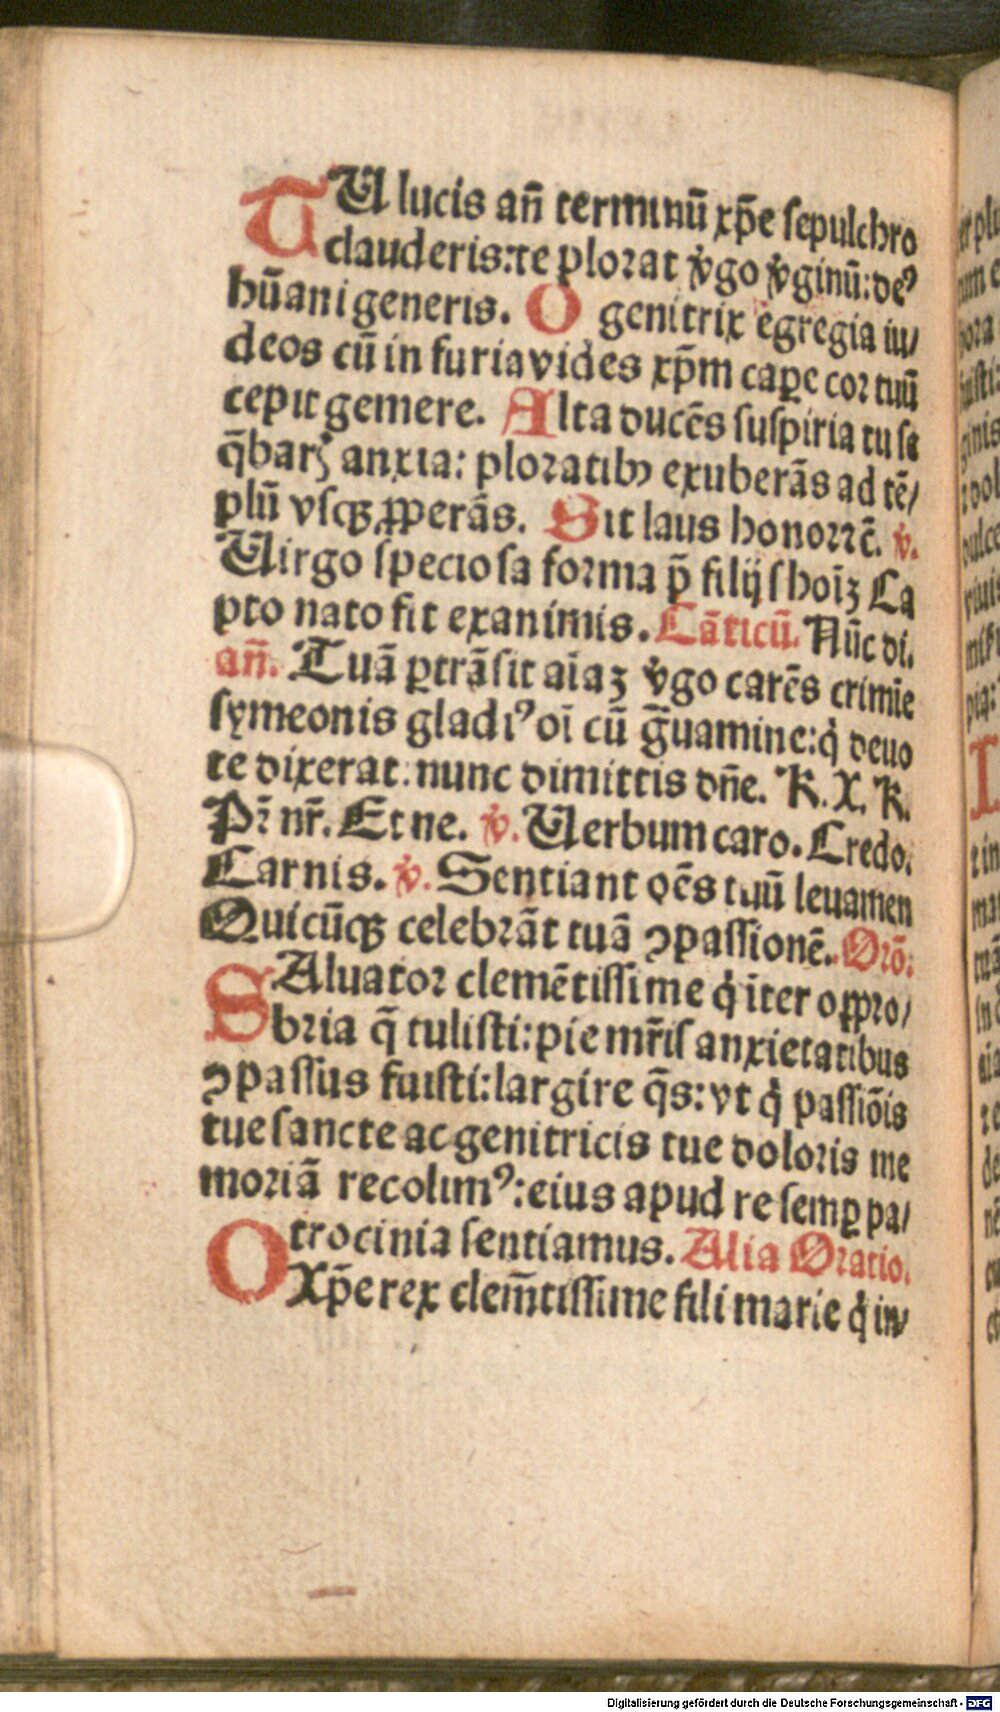 TU lucis añ terminū xp̄e sepulchro
clauderis:te plorat v̓go v̓ginū:deꝰ
hūani generis. O genitrix egregia iu/
deos cū in furia vides xp̄m capꝫe cor tuū
cepit gemere. Alta ducēs suspiria tu se
q̄barꝭ anxia: ploratibꝰ exuberās ad tē/
plū vsqꝫ ꝓꝑerās. Sit laus honor rc̄. v̓.
Uirgo speciosa forma p̄ filijs hoīꝫ Ca
pto nato fit exanimis. Cāticū. Nūc di.
añ. Tuā ꝑtrāsit aīaꝫ v̓go carēs crimīe
symeonis gladiꝰ oī cū g̃uamine:q̇ deuo
te dixerat: nunc dimittis dn̄e. K. X. K.
Pr̄ nr̄. Et ne. v̓. Uerbum caro. Credo.
Carnis. v̓. Sentiant oēs tuū leuamen
Quicūqꝫ celebrāt tuā ꝯpassionē. Orō:
SAluator clemētissime q̇ iter oppro/
bria q̄ tulisti:pie mr̄is anxietatibus
ꝯpassus fuisti:largire q̄s:vt q̇ passiōis
tue sancte ac genitricis tue doloris me
moriā recolimꝰ:eius apud te semꝑ pa/
trocinia sentiamus. Alia Oratio.
O Xp̄e rex clem̄tissime fili marie q̇ in/
Digitalisierung gefördert durch die Deutsche Forschungsgemeinschaft - DFG